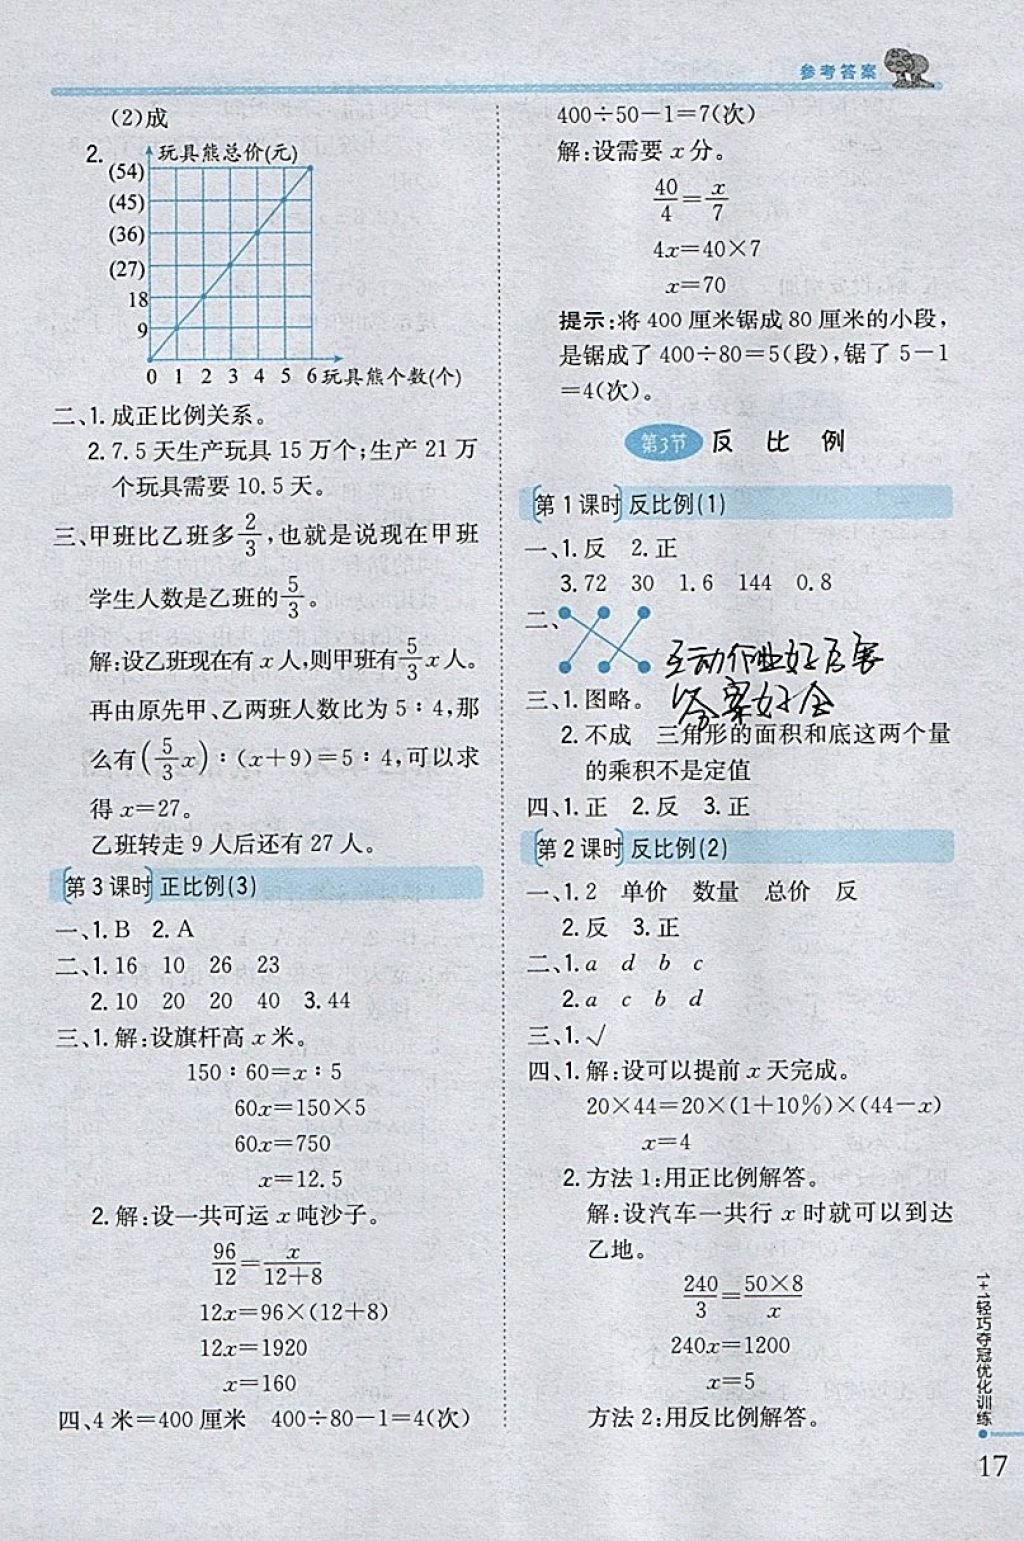 参考答案
(2)成
2.
玩具熊总价(元)
(54)
(45)
(36)
(27)
18
9
0 1 2 3 4 5 6 玩具熊个数(个)
二、1. 成正比例关系。
2. 7.5天生产玩具15万个;生产21万
个玩具需要10.5天。
三、甲班比乙班多2/3,也就是说现在甲班
学生人数是乙班的5/3。
解:设乙班现在有x人,则甲班有5/3x人。
再由原先甲、乙两班人数比为5∶4,那
么有(5/3x)∶(x+9)=5∶4,可以求
得x=27。
乙班转走9人后还有27人。
第3课时 正比例(3)
一、1. B 2. A
二、1. 16 10 26 23
2. 10 20 20 40 3. 44
三、1. 解:设旗杆高x米。
150∶60=x∶5
60x=150×5
60x=750
x=12.5
2. 解:设一共可运x吨沙子。
96/12=x/(12+8)
12x=96×(12+8)
12x=1920
x=160
四、4米=400厘米 400÷80-1=4(次)
400÷50-1=7(次)
解:设需要x分。
40/4=x/7
4x=40×7
x=70
提示:将400厘米锯成80厘米的小段,
是锯成了400÷80=5(段),锯了5-1
=4(次)。
第3节 反比例
第1课时 反比例(1)
一、1. 反 2. 正
3. 72 30 1.6 144 0.8
二、
三、1. 图略。
2. 不成 三角形的面积和底这两个量
的乘积不是定值
四、1. 正 2. 反 3. 正
第2课时 反比例(2)
一、1. 2 单价 数量 总价 反
2. 反 3. 正
二、1. a d b c
2. a c b d
三、1. √
四、1. 解:设可以提前x天完成。
20×44=20×(1+10%)×(44-x)
x=4
2. 方法1:用正比例解答。
解:设汽车一共行x时就可以到达
乙地。
240/3=50×8/x
240x=1200
x=5
方法2:用反比例解答。
1+1轻巧夺冠优化训练
17